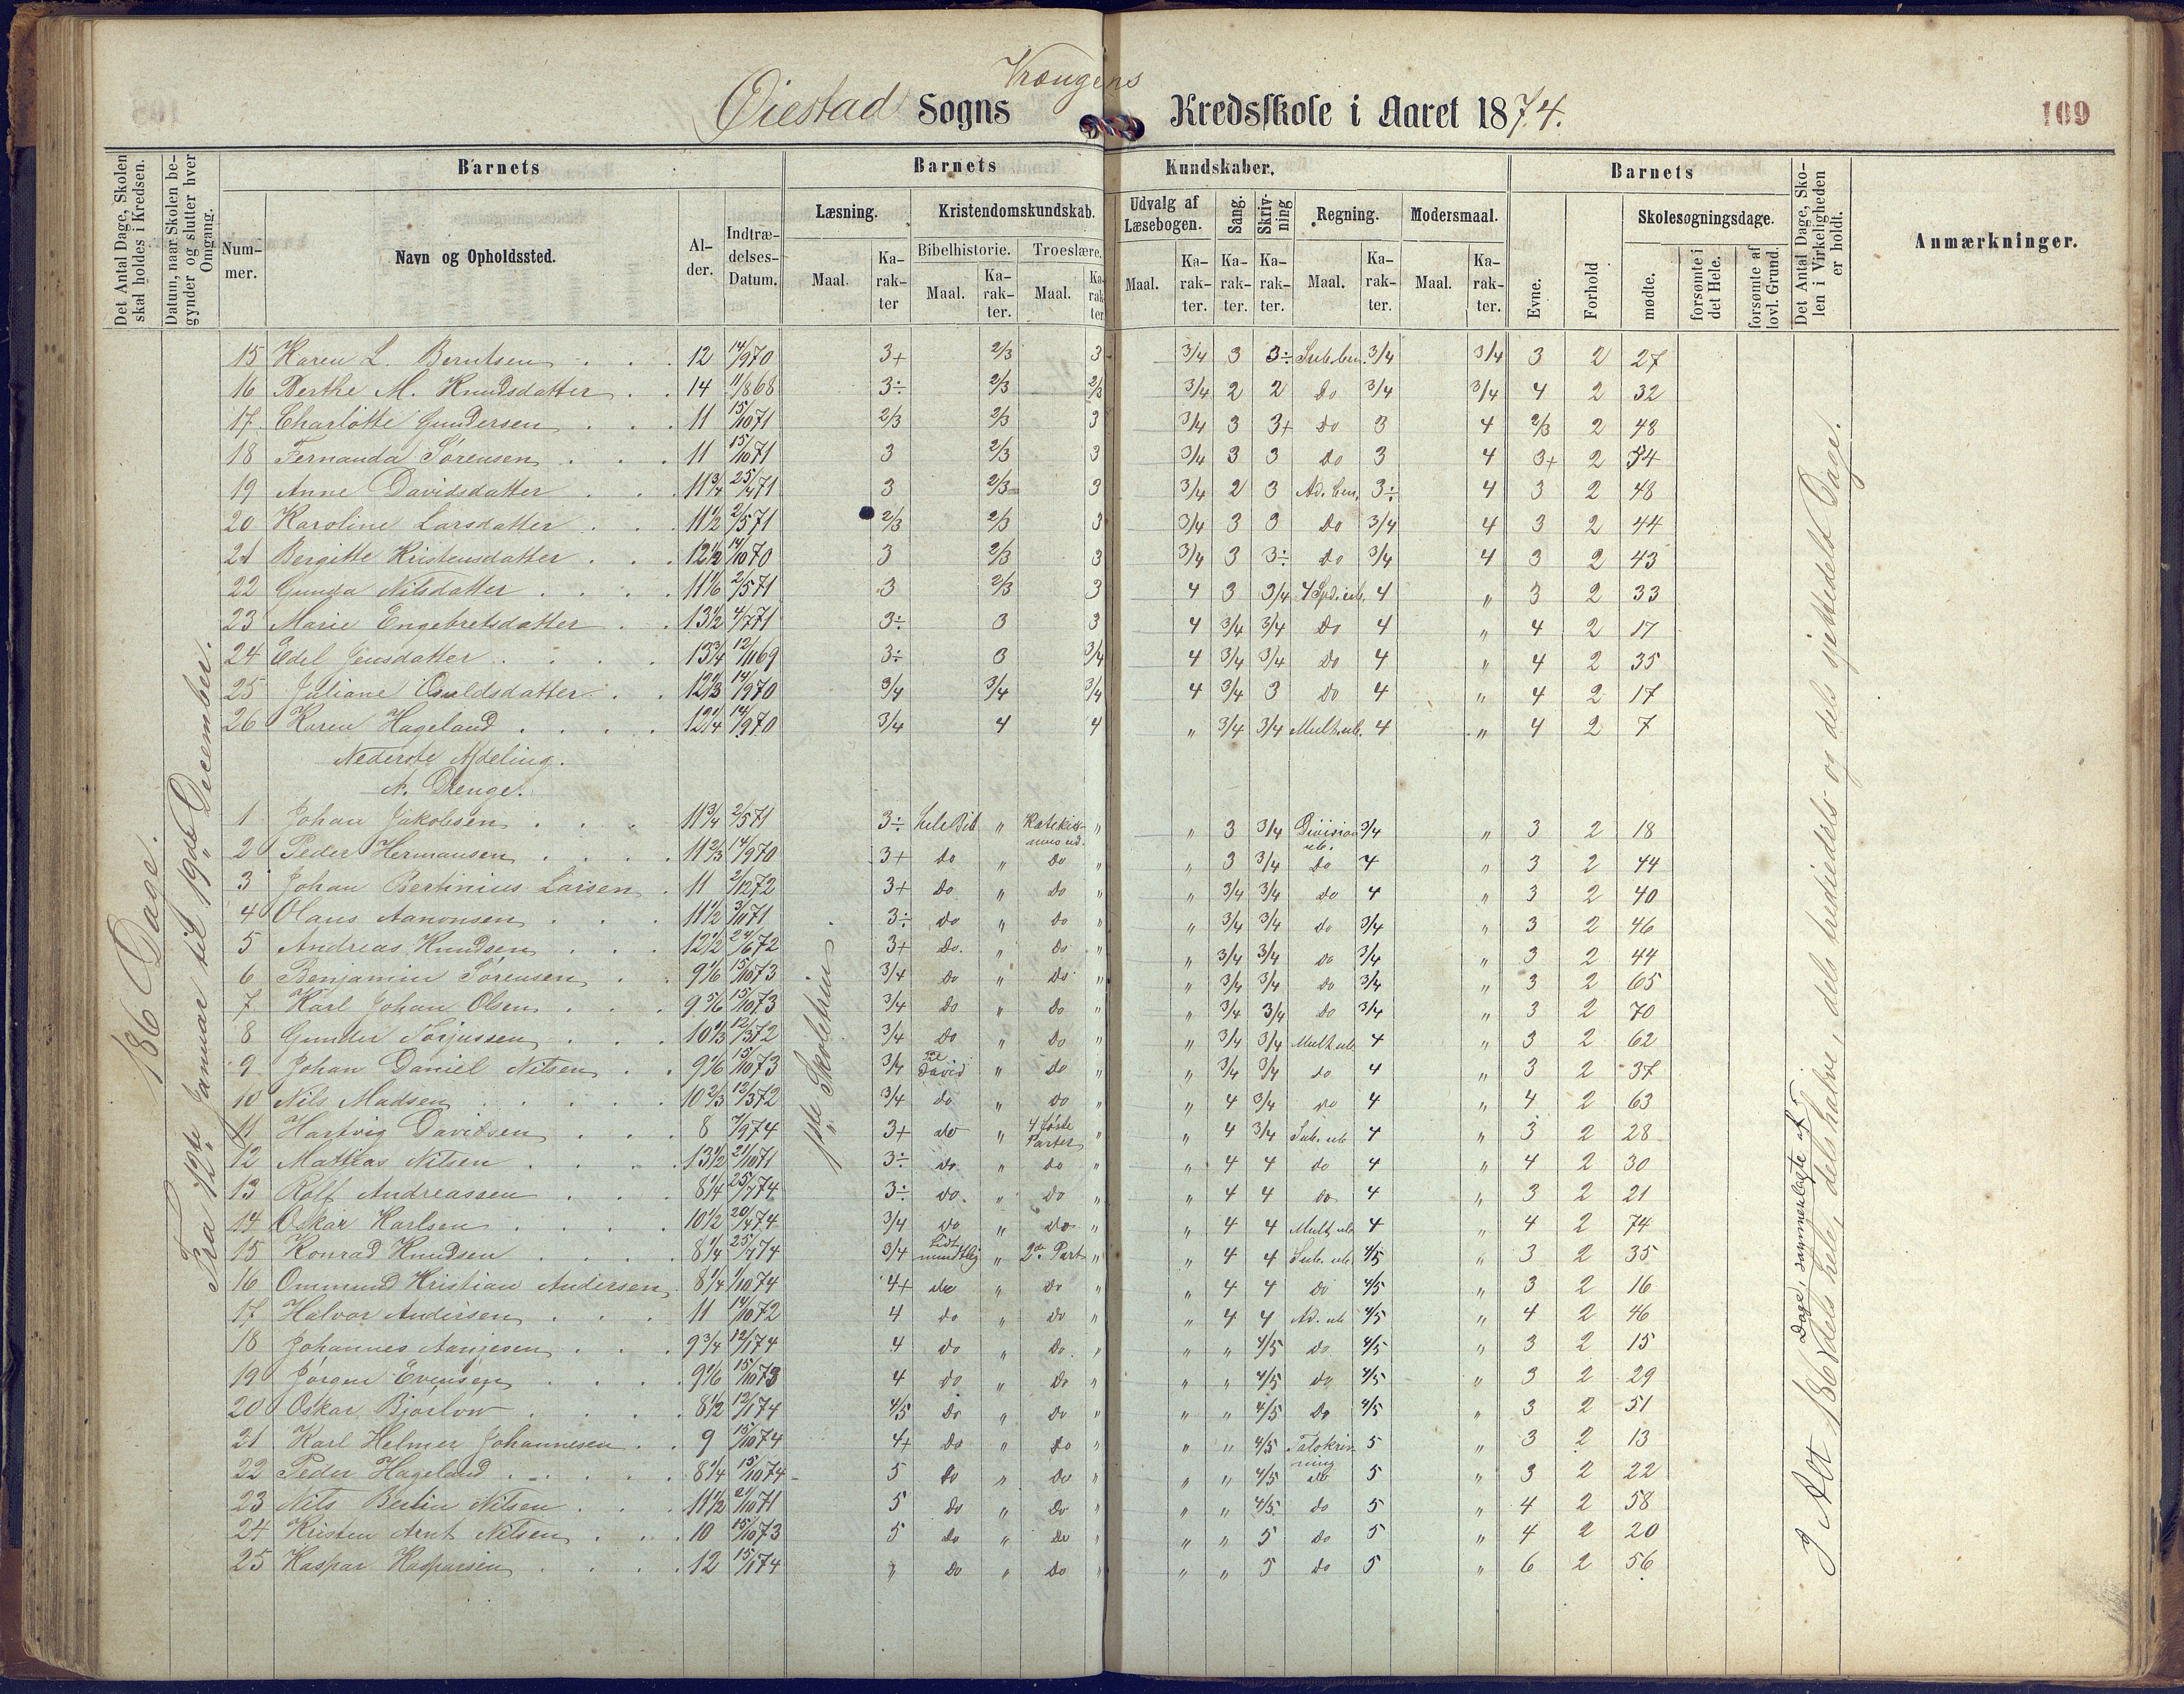 Øiestad Sogns Vrængens Kredsskole i Aaret 1874.
109
Det Antal Dage, Skolen skal holdes i Kredsen.
Datum, naar Skolen begynder og slutter hver Omgang.
Barnets
Nummer.
Navn og Opholdssted.
Alder.
Indtrædelses-Datum.
Barnets Kundskaber.
Læsning.
Maal.
Karakter
Kristendomskundskab.
Bibelhistorie.
Maal.
Karakter.
Troeslære.
Maal.
Karakter
Udvalg af Læsebogen.
Maal.
Karakter.
Sang.
Karakter.
Skrivning
Karakter.
Regning.
Maal.
Karakter.
Modersmaal.
Maal.
Karakter.
Barnets
Evne.
Forhold
Skolesøgningsdage.
mødte.
forsømte i det Hele.
forsømte af lovl. Grund.
Det Antal Dage, Skolen i Virkeligheden er holdt.
Anmærkninger.
186 Dage.
Fra 12te Januar til 19de December.
15 Karen L. Berntsen 12 14/9 70 3+ 2/3 3 3/4 3 3÷ Sub. ben. 3/4 3/4 3 2 27
16 Berthe M. Knudsdatter 14 11/8 68 3÷ 2/3 2/3 3/4 2 2 do 3/4 3/4 4 2 32
17 Charlotte Gundersen 11 15/10 71 2/3 2/3 3 3/4 3 3+ do 3 4 2/3 2 48
18 Fernanda Sørensen 11 15/10 71 3 2/3 3 3/4 3 3 do 3 4 3+ 2 54
19 Anne Davidsdatter 11 3/4 25/4 71 3 2/3 3 3/4 2 3 Ad. ben. 3÷ 4 3 2 48
20 Karoline Larsdatter 11 1/2 2/5 71 2/3 2/3 3 3/4 3 3 do 3/4 4 3 2 44
21 Bergitte Kristensdatter 12 1/2 14/10 70 3 2/3 3 3/4 3 3÷ do 3/4 4 3 2 43
22 Gunda Nilsdatter 11 1/6 2/5 71 3 2/3 3 4 3 3/4 4 Spd. ub. 4 " 3 2 33
23 Marie Engebretsdatter 13 1/2 4/7 71 3÷ 3 3 4 3/4 3/4 do 4 " 4 2 17
24 Edel Jensdatter 13 3/4 12/11 69 3÷ 3 3/4 4 3/4 3/4 do 4 " 4 2 35
25 Juliane Osuldsdatter 12 2/3 14/9 70 3/4 3/4 3/4 4 3/4 3 do 4 " 4 2 17
26 Karen Hageland 12 1/4 14/9 70 3/4 4 4 " 3/4 3/4 Mult. ub. 4 " 4 2 7
Nederste Afdeling.
A. Drenge.
1 Johan Jakobsen 11 3/4 2/5 71 3÷ Hele Bib " Katekismus ud. " " 3 3/4 Division ub. 3/4 " 3 2 18
2 Peder Hermansen 11 2/3 14/9 70 3+ do " do " " 3 3/4 do 4 " 3 2 44
3 Johan Bertinius Larsen 11 2/12 72 3+ do " do " " 3/4 3/4 do 4 " 3 2 40
4 Olaus Aanonsen 11 1/2 3/11 71 3÷ do " do " " 3/4 3/4 do 3/4 " 3 2 46
5 Andreas Knudsen 12 1/2 24/6 72 3+ do. " do " " 3/4 3/4 do 3/4 " 3 2 44
6 Benjamin Sørensen 9 1/6 15/10 73 3/4 do " do " " 3/4 3/4 do 3/4 " 3 2 65
7 Karl Johan Olsen 9 5/6 15/10 73 3/4 do " do " " 3/4 3/4 do 3/4 " 3 2 70
8 Gunder Torjussen 10 1/3 12/3 72 3/4 do " do " " 3/4 3/4 Mult. ub 4 " 3 2 62
9 Johan Daniel Nilsen 9 1/6 15/10 73 3/4 Til David " do " " 3/4 3/4 do 4 " 3 2 37
10 Nils Madsen 10 2/3 12/3 72 3/4 do " do " " 4 3/4 do 4 " 4 2 63
11 Hartvig Davidsen 8 7/9 74 3+ do " 4 første Parter " " 4 3/4 Sub. ub 4 " 3 2 28
12 Mathias Nilsen 13 1/2 21/10 71 3÷ do " do " 4 4 do 4 " 4 2 30
13 Rolf Andreassen 8 1/4 25/7 74 3÷ do. " do " " 4 4 do 4 " 3 2 21
14 Oskar Karlsen 10 1/2 20/4 74 3/4 do " do " " 4 4 Mult. ub 4 " 4 2 74
15 Konrad Knudsen 8 1/4 25/7 74 3/4 Lidt mundtlig " 2de Part " " 4 4 Sub. ub. 4/5 " 3 2 35
16 Ommund Kristian Andersen 8 1/4 1/10 74 4+ do " do " " 4 4 do 4/5 " 3 2 16
17 Halvor Andersen 11 14/10 72 4 do " do " " 4 4 Ad. ub 4/5 " 4 2 46
18 Johannes Aanjesen 9 3/4 12/1 74 4 do " do " " " 4/5 do 4/5 " 3 2 15
19 Jørgen Evensen 9 1/6 15/10 73 4 do " do " " " 4/5 do 4/5 " 3 2 29
20 Oskar Bjorlow 8 1/2 12/1 74 4/5 do " do " " " 4/5 do 4/5 " 3 2 51
21 Karl Helmer Johannesen 9 15/10 74 4+ do " do " " " 4/5 Talskrivning 5 " 3 2 13
22 Peder Hageland 8 1/4 15/10 74 5 do " do " " " 4/5 do 5 " 3 2 22
23 Nils Bertin Nilsen 11 1/2 21/10 71 5 do " do " " " 4/5 do 5 " 4 2 58
24 Kristen Arnt Nilsen 10 15/10 73 5 do " do " " " 5 do 5 " 4 2 20
25 Kaspar Kasparsen 12 15/1 74 " do " do " " " 5 do 5 " 6 2 56
1ste Skoletrin
I Alt 186 Dage, sammenlagte af dels hele, dels halve, dels trediedels og dels sjettedels Dage.